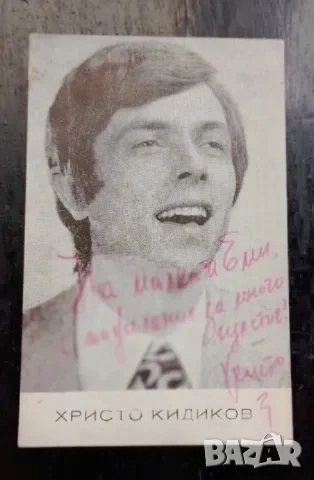 На малката Еми,
с пожелание за много
щастие!
Христо
ХРИСТО КИДИКОВ
BAZAR
bg